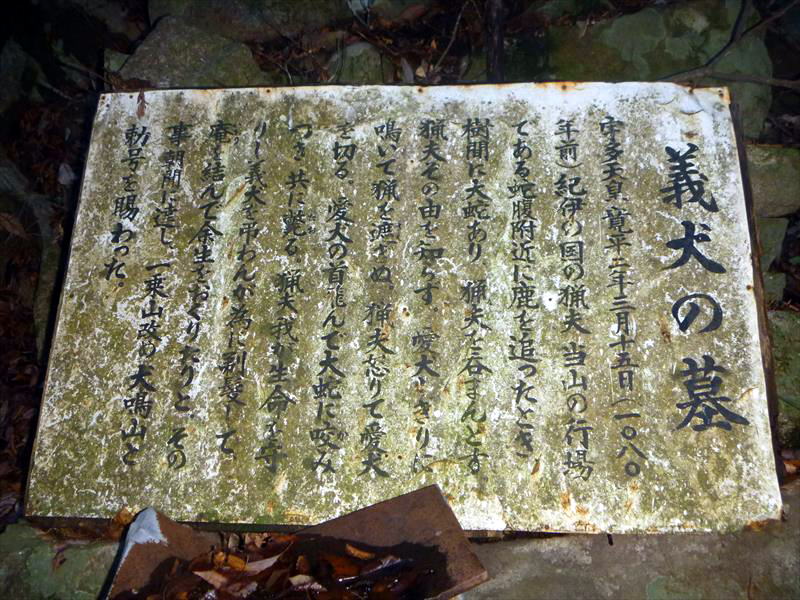 義犬の墓
宇多天皇(寛平二年三月十五日(一〇八〇
年前)紀伊の国の猟夫当山の行場
である蛇腹附近に鹿を追ったとき
樹間に大蛇あり 猟夫を呑まんとす
猟夫その由を知らず。愛犬しきりに
鳴いて猟を遮きぬ、猟夫怒りて愛犬
を切る。愛犬の首飛んで大蛇に咬み
つき共に斃る 猟夫我が生命を守
りし義犬を弔わんが為に剃髪して
庵を結んで余生をおくりたりと その
事朝門に達し、一乗山改め犬鳴山と
勅号を賜わった。